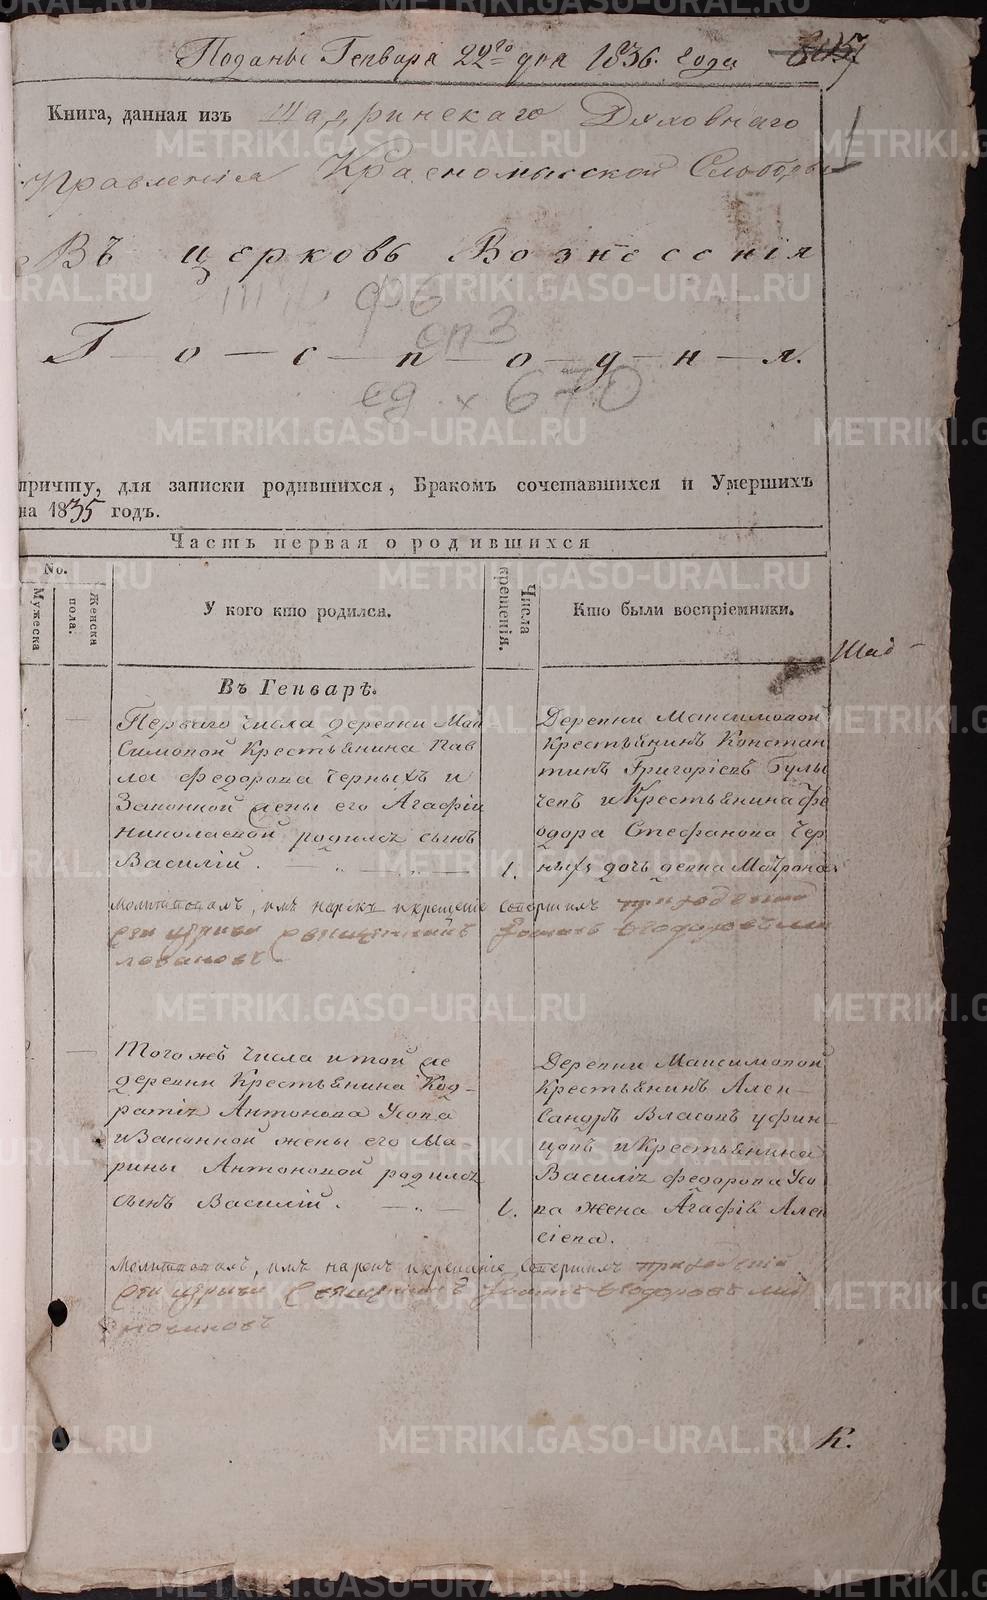 Поданы Генваря 22го дня 1836. года
Книга, данная изъ Шадринскаго Духовнаго
Правленія Красномысской Слободы
Въ церковь Вознесенія
ф 6
оп 3
Г-о-с-п-о-д-н-я.
ед. х 670
причту, для записки родившихся, Бракомъ сочетавшихся и Умершихъ
на 1835 годъ.
Часть первая о родившихся
No.
Мужеска
Женска
пола.
У кого кто родился.
Числа
крещенія.
Кто были воспріемники.
Шад
Въ Генварѣ.
Перваго числа деревни Мак
симовой Крестьянина Пав
ла Федорова Черныхъ и
Законной жены его Агафіи
Николаевой родился сынъ
Василій.
1.
Деревни Максимовой
Крестьянинъ Констан
тинъ Григоріевъ Булы
чевъ и Крестьянина Фе
одора Стефанова Чер
ныхъ дочь девка Матрона
Молитвовалъ, имя нарекъ и крещеніе совершилъ приходскій
сей церкви священникъ Іоаннъ Ѳеодоровъ
Того жъ числа и той же
деревни Крестьянина Код-
ратія Антонова Усова
и Законной жены его Ма
рины Антоновой родился
сынъ Василій.
1.
Деревни Максимовой
Крестьянинъ Алек-
сандръ Власовъ Уфин-
цовъ и Крестьянина
Василія Федорова Усо
ва жена Агафія Алек
сіева.
Молитвовалъ, имя нарекъ и крещеніе совершилъ приходскій
сей церкви священникъ Іоаннъ Ѳеодоровъ
К.
METRIKI.GASO-URAL.RU